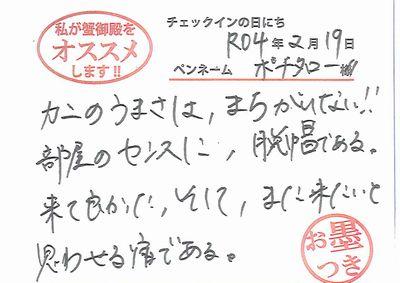 私が蟹御殿を
オススメ
します!!
チェックインの日にち
R04年2月19日
ペンネーム ポチタロー様
カニのうまさは、まちがいない!!
部屋のセンスに、脱帽である。
来て良かった、そして、また来たいと
思わせる宿である。
お墨
つき